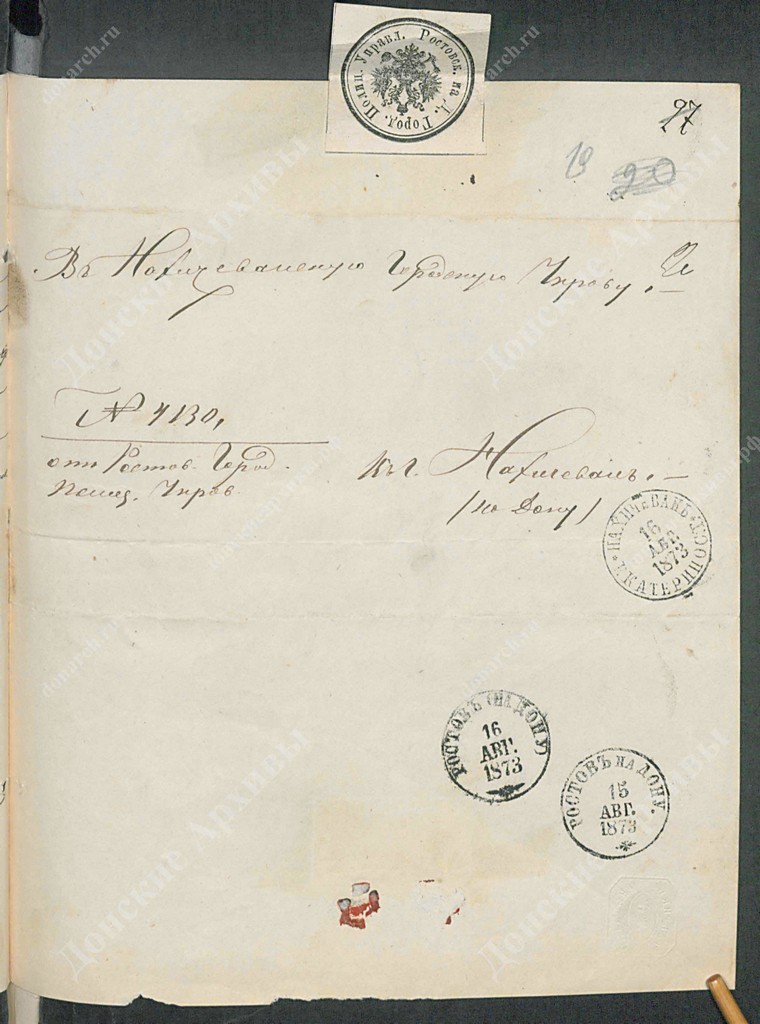 Полиц. Управл. Ростовск. на Д. Город.
27
19
20
Въ Нахичеванскую Городскую Управу.
№ 4130,
отъ Ростов. Город.
Полиц. Управ.
Въ г. Нахичевань.
(на Дону)
НАХИЧЕВАНЬ ЕКАТЕРИНОС.
16
АВГ.
1873
РОСТОВЪ (НА ДОНУ)
16
АВГ.
1873
РОСТОВЪ НА ДОНУ.
15
АВГ.
1873
donarch.ru
Донские Архивы